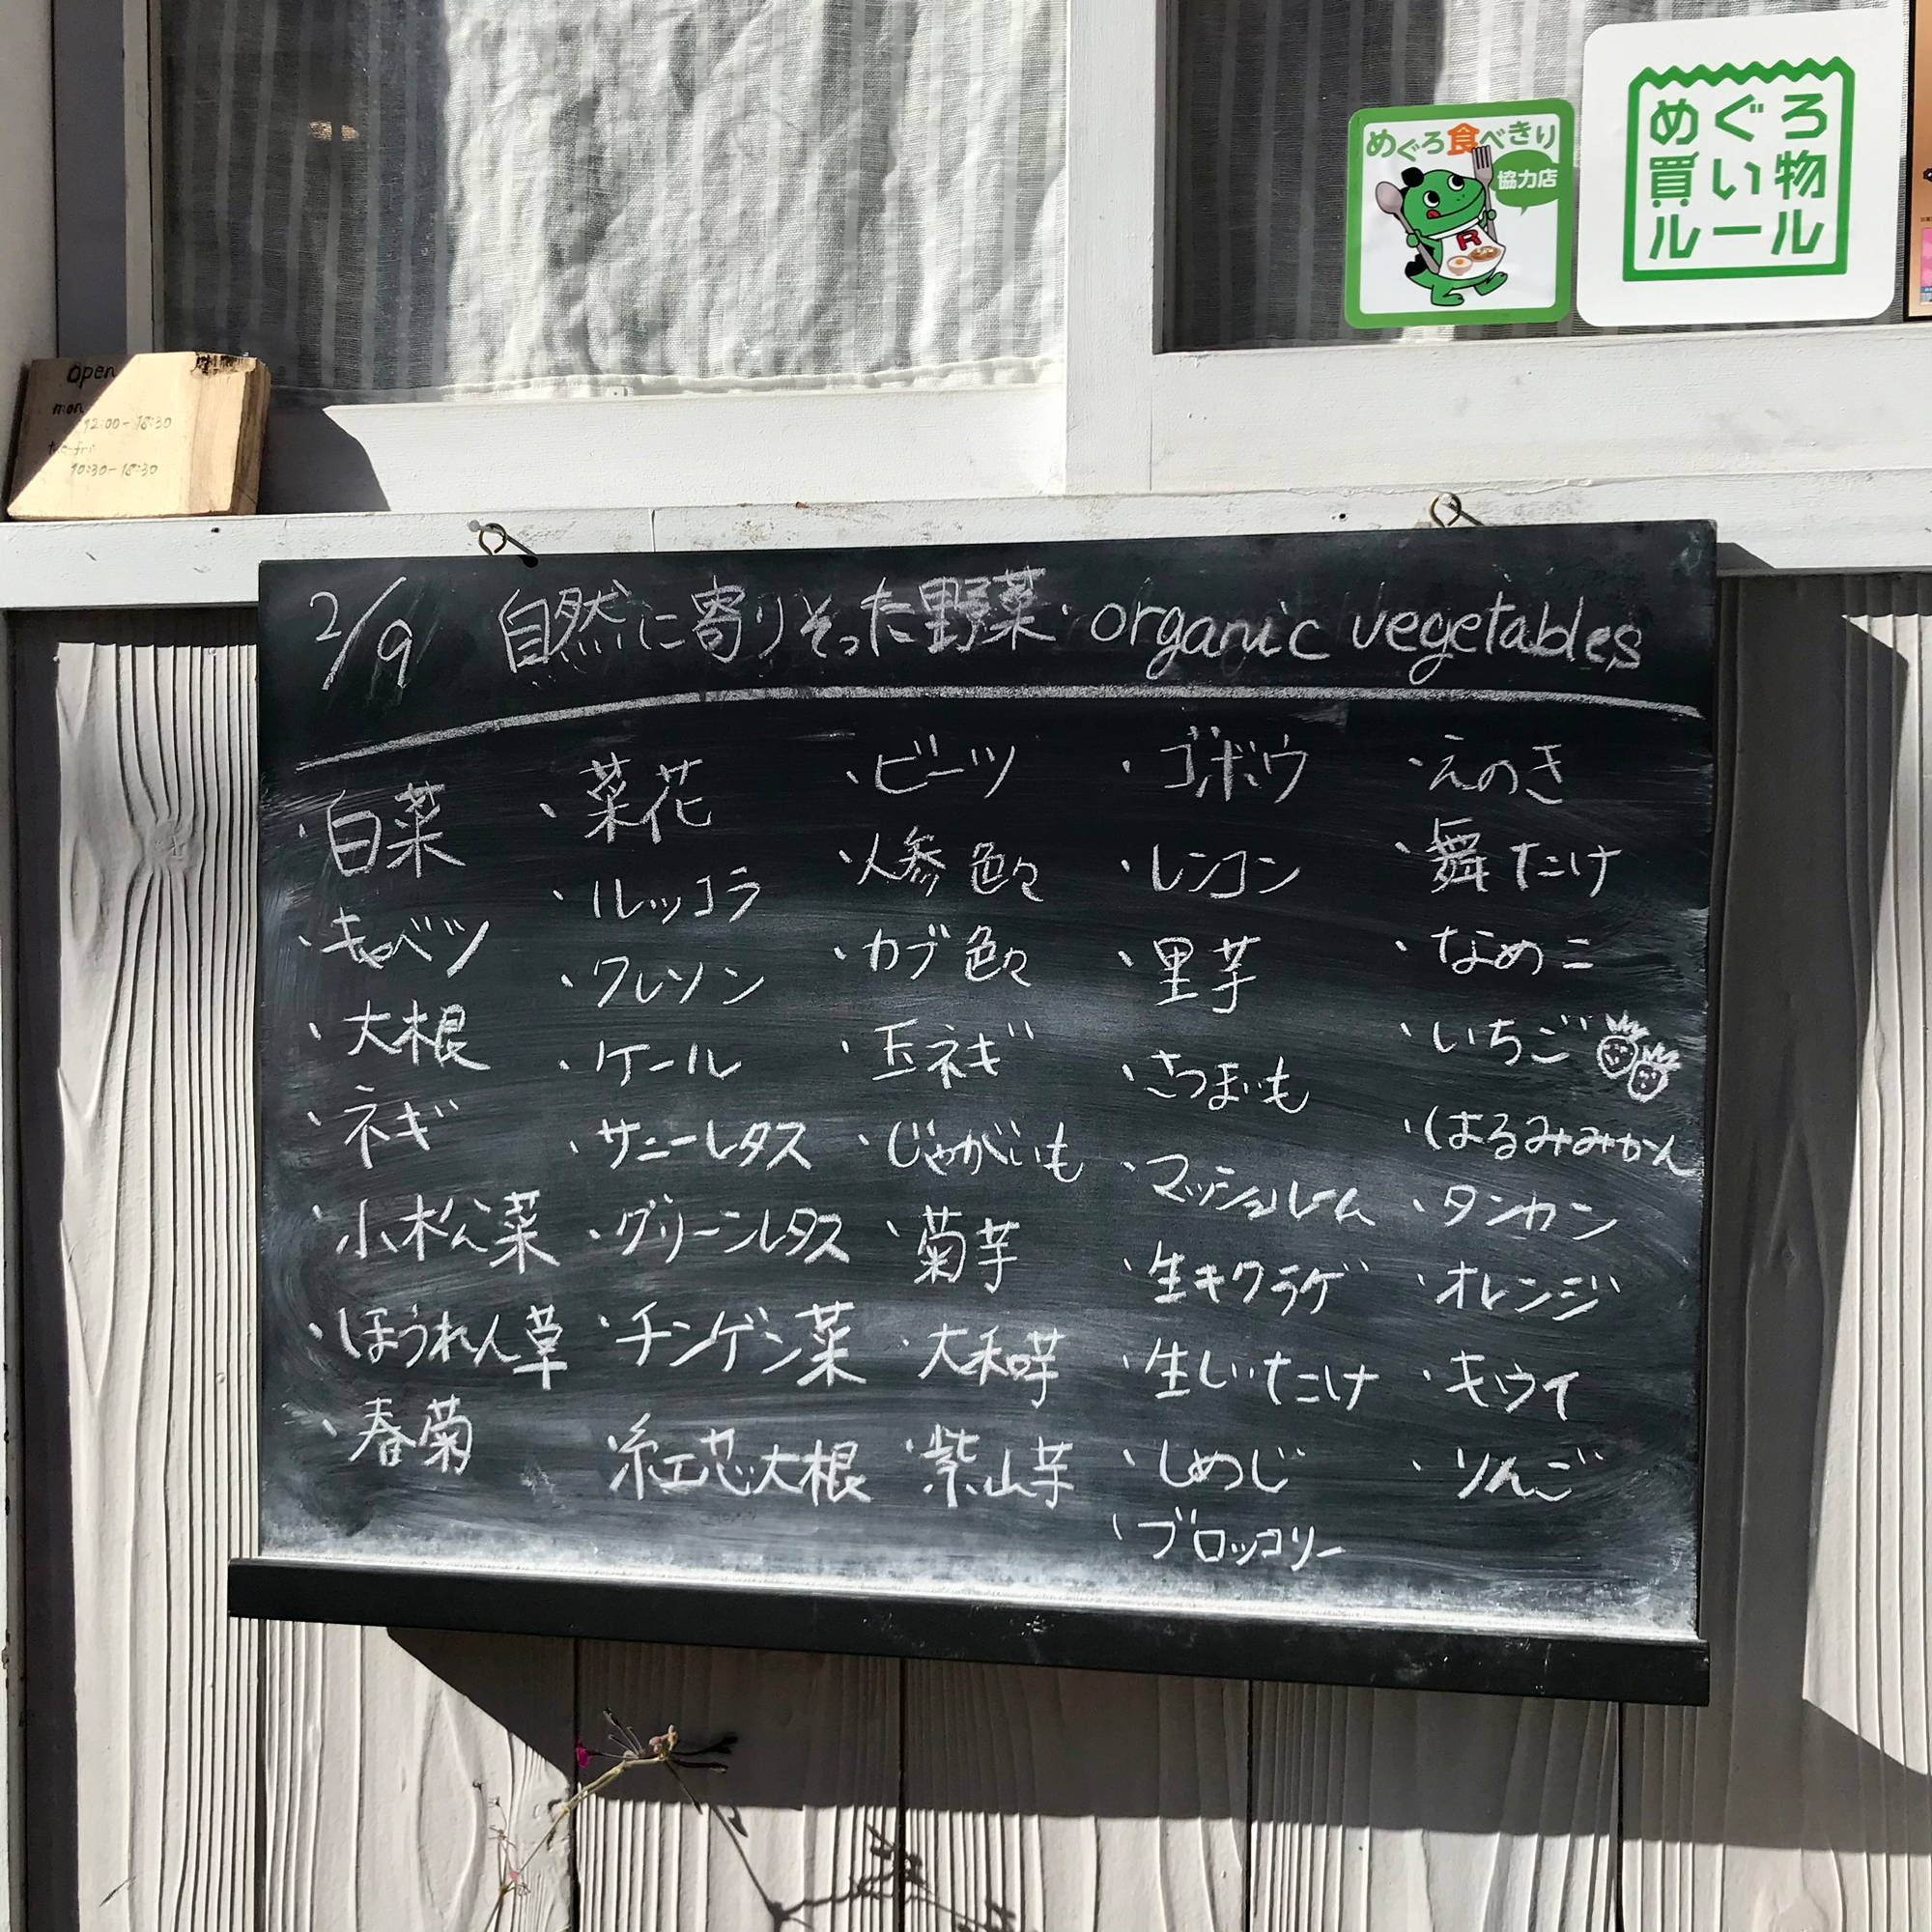 めぐろ食べきり
協力店
R
めぐろ
買い物
ルール
Open
mon
12:00-18:30
10:30-18:30
2/9 自然に寄りそった野菜・organic vegetables
・白菜
・キャベツ
・大根
・ネギ
・小松菜
・ほうれん草
・春菊
・菜花
・ルッコラ
・クレソン
・ケール
・サニーレタス
・グリーンレタス
・チンゲン菜
・紅芯大根
・ビーツ
・人参 色々
・カブ 色々
・玉ネギ
・じゃがいも
・菊芋
・大和芋
・紫山芋
・ゴボウ
・レンコン
・里芋
・さつまいも
・マッシュルーム
・生キクラゲ
・生しいたけ
・しめじ
・ブロッコリー
・えのき
・舞たけ
・なめこ
・いちご
・はるみみかん
・タンカン
・オレンジ
・キウイ
・りんご